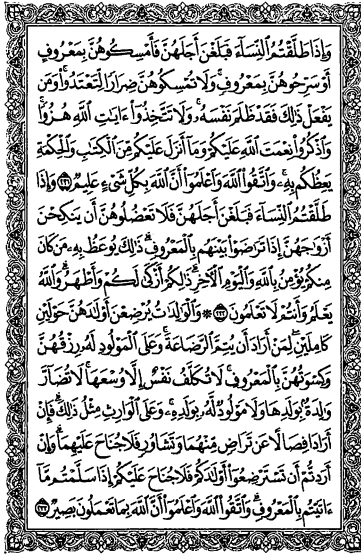 وَإِذَا طَلَّقْتُمُ ٱلنِّسَآءَ فَبَلَغْنَ أَجَلَهُنَّ فَأَمْسِكُوهُنَّ بِمَعْرُوفٍ
أَوْ سَرِّحُوهُنَّ بِمَعْرُوفٍ ۚ وَلَا تُمْسِكُوهُنَّ ضِرَارًا لِّتَعْتَدُوا۟ ۚ وَمَن
يَفْعَلْ ذَٰلِكَ فَقَدْ ظَلَمَ نَفْسَهُۥ ۚ وَلَا تَتَّخِذُوٓا۟ ءَايَـٰتِ ٱللَّهِ هُزُوًا ۚ
وَٱذْكُرُوا۟ نِعْمَتَ ٱللَّهِ عَلَيْكُمْ وَمَآ أَنزَلَ عَلَيْكُم مِّنَ ٱلْكِتَـٰبِ وَٱلْحِكْمَةِ
يَعِظُكُم بِهِۦ ۚ وَٱتَّقُوا۟ ٱللَّهَ وَٱعْلَمُوٓا۟ أَنَّ ٱللَّهَ بِكُلِّ شَىْءٍ عَلِيمٌ ٢٣١ وَإِذَا
طَلَّقْتُمُ ٱلنِّسَآءَ فَبَلَغْنَ أَجَلَهُنَّ فَلَا تَعْضُلُوهُنَّ أَن يَنكِحْنَ
أَزْوَٰجَهُنَّ إِذَا تَرَٰضَوْا۟ بَيْنَهُم بِٱلْمَعْرُوفِ ۗ ذَٰلِكَ يُوعَظُ بِهِۦ مَن كَانَ
مِنكُمْ يُؤْمِنُ بِٱللَّهِ وَٱلْيَوْمِ ٱلْـَٔاخِرِ ۗ ذَٰلِكُمْ أَزْكَىٰ لَكُمْ وَأَطْهَرُ ۗ وَٱللَّهُ
يَعْلَمُ وَأَنتُمْ لَا تَعْلَمُونَ ٢٣٢ ۞ وَٱلْوَٰلِدَٰتُ يُرْضِعْنَ أَوْلَـٰدَهُنَّ حَوْلَيْنِ
كَامِلَيْنِ ۖ لِمَنْ أَرَادَ أَن يُتِمَّ ٱلرَّضَاعَةَ ۚ وَعَلَى ٱلْمَوْلُودِ لَهُۥ رِزْقُهُنَّ
وَكِسْوَتُهُنَّ بِٱلْمَعْرُوفِ ۚ لَا تُكَلَّفُ نَفْسٌ إِلَّا وُسْعَهَا ۚ لَا تُضَآرَّ
وَٰلِدَةٌۢ بِوَلَدِهَا وَلَا مَوْلُودٌ لَّهُۥ بِوَلَدِهِۦ ۚ وَعَلَى ٱلْوَارِثِ مِثْلُ ذَٰلِكَ ۗ فَإِنْ
أَرَادَا فِصَالًا عَن تَرَاضٍ مِّنْهُمَا وَتَشَاوُرٍ فَلَا جُنَاحَ عَلَيْهِمَا ۗ وَإِنْ
أَرَدتُّمْ أَن تَسْتَرْضِعُوٓا۟ أَوْلَـٰدَكُمْ فَلَا جُنَاحَ عَلَيْكُمْ إِذَا سَلَّمْتُم مَّآ
ءَاتَيْتُم بِٱلْمَعْرُوفِ ۗ وَٱتَّقُوا۟ ٱللَّهَ وَٱعْلَمُوٓا۟ أَنَّ ٱللَّهَ بِمَا تَعْمَلُونَ بَصِيرٌ ٢٣٣